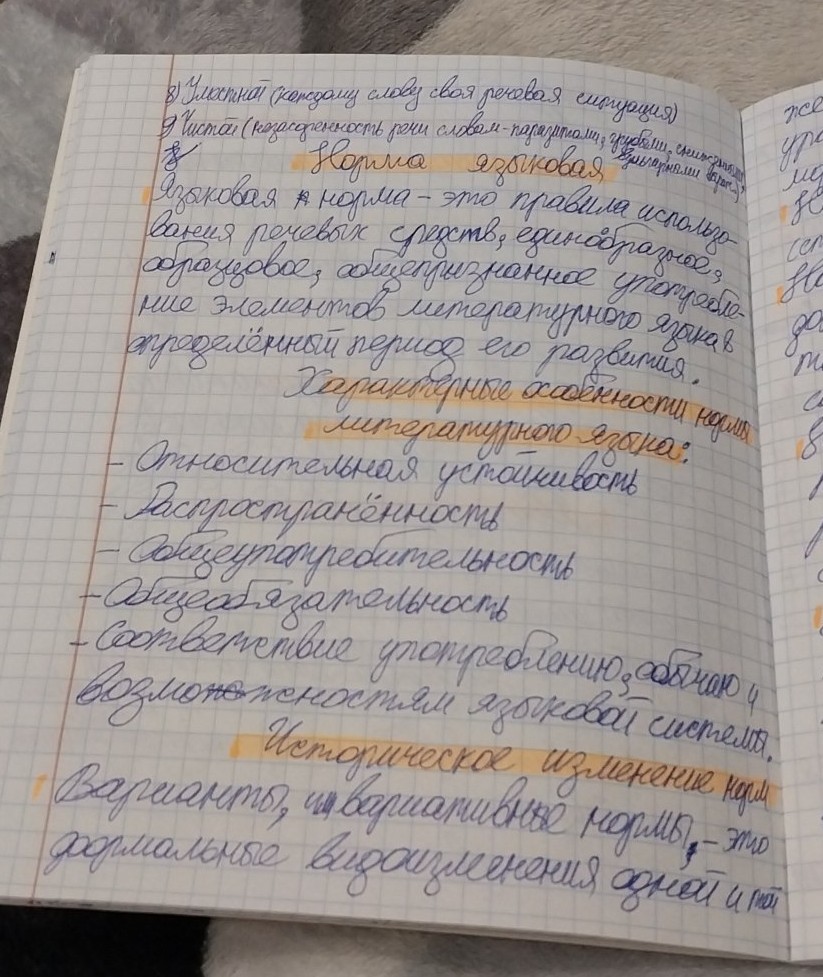 8) Уместной (каждому слову своя речевая ситуация)
9) Чистой (незасоренность речи словами-паразитами, грубыми, сниженными,
вульгарными
Норма языковая
Языковая норма – это правила использо-
вания речевых средств, единообразное,
образцовое, общепризнанное употребле-
ние элементов литературного языка в
определённый период его развития.
Характерные особенности нормы
литературного языка:
– Относительная устойчивость
– Распространённость
– Общеупотребительность
– Общеобязательность
– Соответствие употреблению, обычаю и
возможностям языковой системы.
Историческое изменение норм
Варианты, вариативные нормы, – это
формальные видоизменения одной и той
же